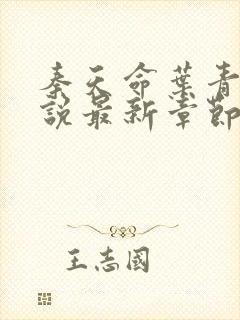 秦天命葉青
說最新章節
王志國